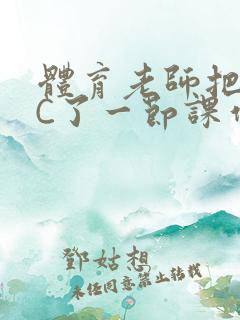 體育老師把
C了一節課
鄧姑想
未經同意禁止轉載